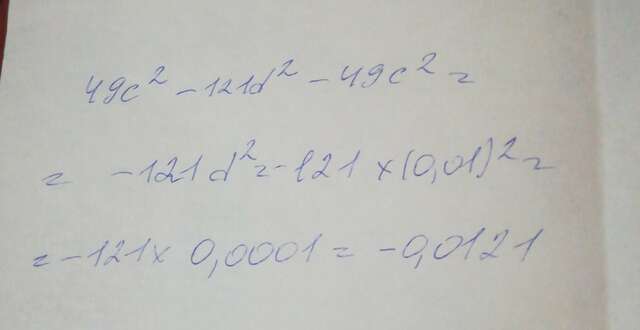 49c² - 121d² - 49c² =
= -121d² = -121 × (0,01)² =
= -121 × 0,0001 = -0,0121